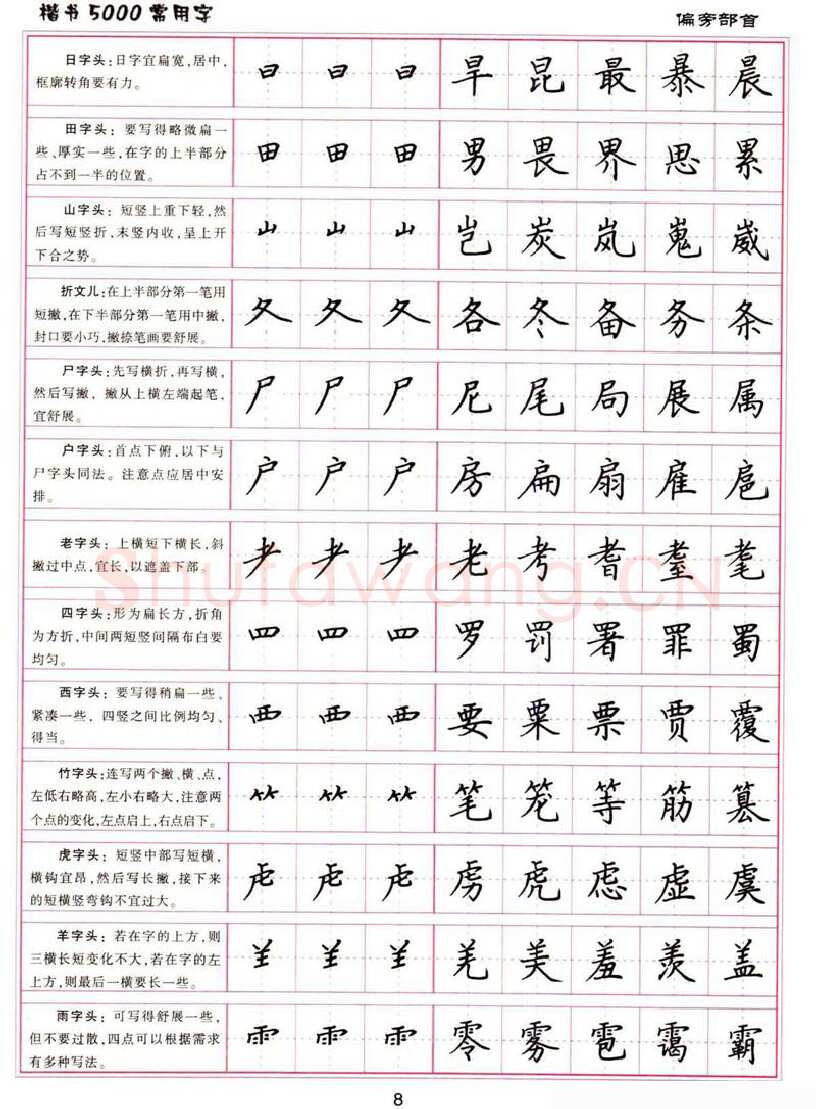 楷书5000常用字
偏旁部首
日字头:日字宜扁宽,居中,
框廓转角要有力。
日 日 日 旱 昆 最 暴 晨
田字头:要写得略微扁一
些、厚实一些,在字的上半部分
占不到一半的位置。
田 田 田 男 畏 界 思 累
山字头:短竖上重下轻,然
后写短竖折,末竖内收,呈上开
下合之势。
山 山 山 岂 炭 岚 嵬 崴
折文儿:在上半部分第一笔用
短撇,在下半部分第一笔用中撇,
封口要小巧,撇捺笔画要舒展。
夂 夂 夂 各 冬 备 务 条
尸字头:先写横折,再写横,
然后写撇,撇从上横左端起笔,
宜舒展。
尸 尸 尸 尼 尾 局 展 属
户字头:首点下俯,以下与
尸字头同法。注意点应居中安
排。
户 户 户 房 扁 扇 雇 扈
老字头:上横短下横长,斜
撇过中点,宜长,以遮盖下部。
耂 耂 耂 老 考 耆 耋 耄
四字头:形为扁长方,折角
为方折,中间两短竖间隔布白要
均匀。
罒 罒 罒 罗 罚 署 罪 蜀
西字头:要写得稍扁一些、
紧凑一些,四竖之间比例均匀、
得当。
覀 覀 覀 要 粟 票 贾 覆
竹字头:连写两个撇、横、点,
左低右略高,左小右略大,注意两
个点的变化,左点启上,右点启下。
⺮ ⺮ ⺮ 笔 笼 等 筋 篡
虎字头:短竖中部写短横,
横钩宜昂,然后写长撇,接下来
的短横竖弯钩不宜过大。
虍 虍 虍 虏 虎 虑 虚 虞
羊字头:若在字的上方,则
三横长短变化不大,若在字的左
上方,则最后一横要长一些。
⺷ ⺷ ⺷ 羌 美 羞 羡 盖
雨字头:可写得舒展一些,
但不要过散,四点可以根据需求
有多种写法。
⻗ ⻗ ⻗ 零 雾 雹 霭 霸
shufawang.CN
8